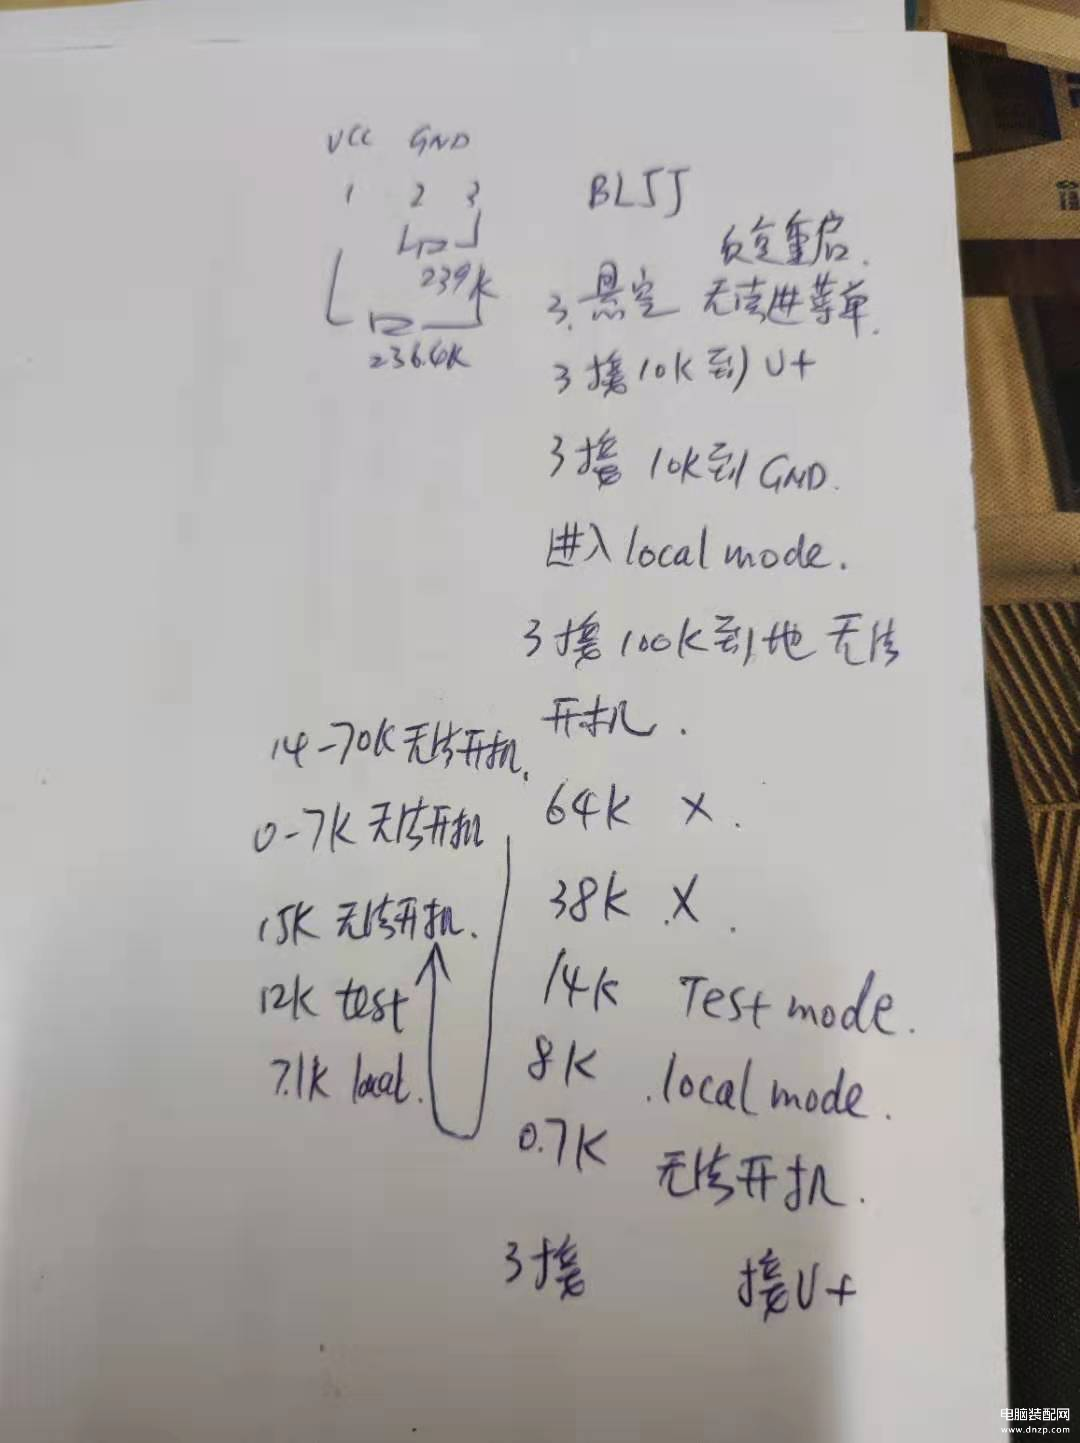 VCC GND
1 2 3
239K
236.6K
BLJJ
重启.
3. 悬空 无法进菜单.
3接10K到U+
3接 10K到GND.
进入local mode.
3接100K到地 无法
开机.
14-70K无法开机.
0-7K 无法开机
15K 无法开机.
12K test
7.1K local.
64K X.
38K X.
14K Test mode.
8K .local mode.
0.7K 无法开机.
3接 接U+
电脑装配网
www.dnzp.com